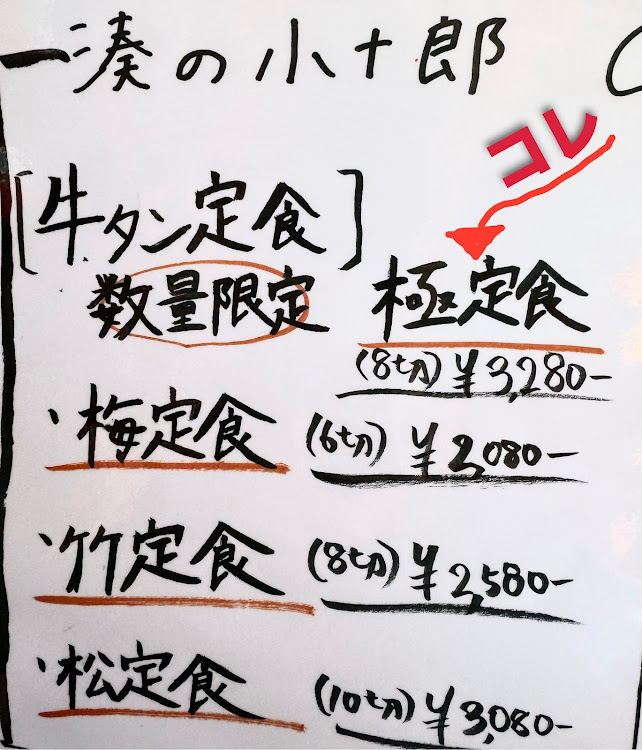 一湊の小十郎
コレ
[牛タン定食]
数量限定 極定食
(8切) ¥3,280-
・梅定食 (6切) ¥2,080-
・竹定食 (8切) ¥2,580-
・松定食 (10切) ¥3,080-